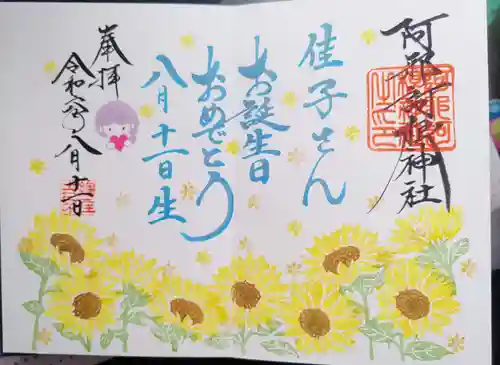 阿邪訶根神社
佳子さん
お誕生日
おめでとう
八月十一日生
奉拝
令和 年八月十一日